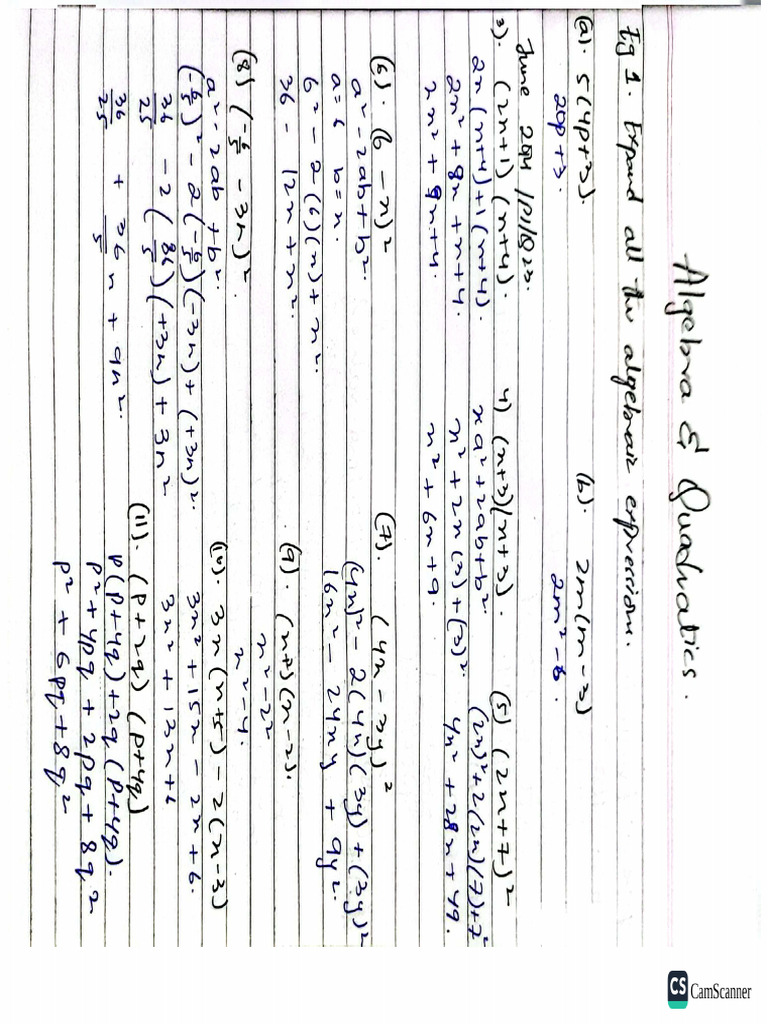 Algebra & Quadratics.
Eg 1. Expand all the algebraic expression.
(a). 5(4p+3).
20p+3.
(b). 2m(m-3)
2m²-6.
June 2014/P1/Q23.
3). (2x+1) (x+4).
2x(x+4)+1(x+4).
2x²+8x+x+4.
2x²+9x+4.
4) (x+3)(x+3).
xa²+2ab+b².
x²+2x(3)+(3)².
x²+6x+9.
(5) (2x+7)²
(2x)²+2(2x)(7)+7²
4x²+28x+49.
(6). (6-x)²
a²-2ab+b².
a=6 b=x.
6²-2(6)(x)+x².
36-12x+x².
(7). (4x-3y)²
(4x)²-2(4x)(3y)+(3y)²
16x²-24xy+9y².
(8) (-6/5 - 3x)².
a²-2ab+b².
(-6/5)²-2(-6/5)(-3x)+(+3x)².
36/25 - 2(36/5)(+3x)+3x²
36/25 + 36/5 x + 9x².
(9). (x+2)(x-2).
x²-2²
x²-4.
(10). 3x(x+5)-2(x-3)
3x²+15x-2x+6.
3x²+13x+6
(11). (p+2q)(p+4q)
p(p+4q)+2q(p+4q).
p²+4pq+2pq+8q²
p²+6pq+8q²
CS CamScanner